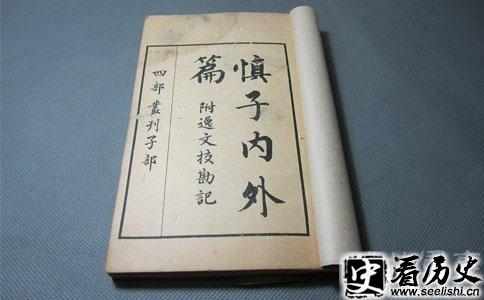 慎子内外
篇
附逸文校勘記
四部叢刊子部
史看历史
www.seelishi.cn